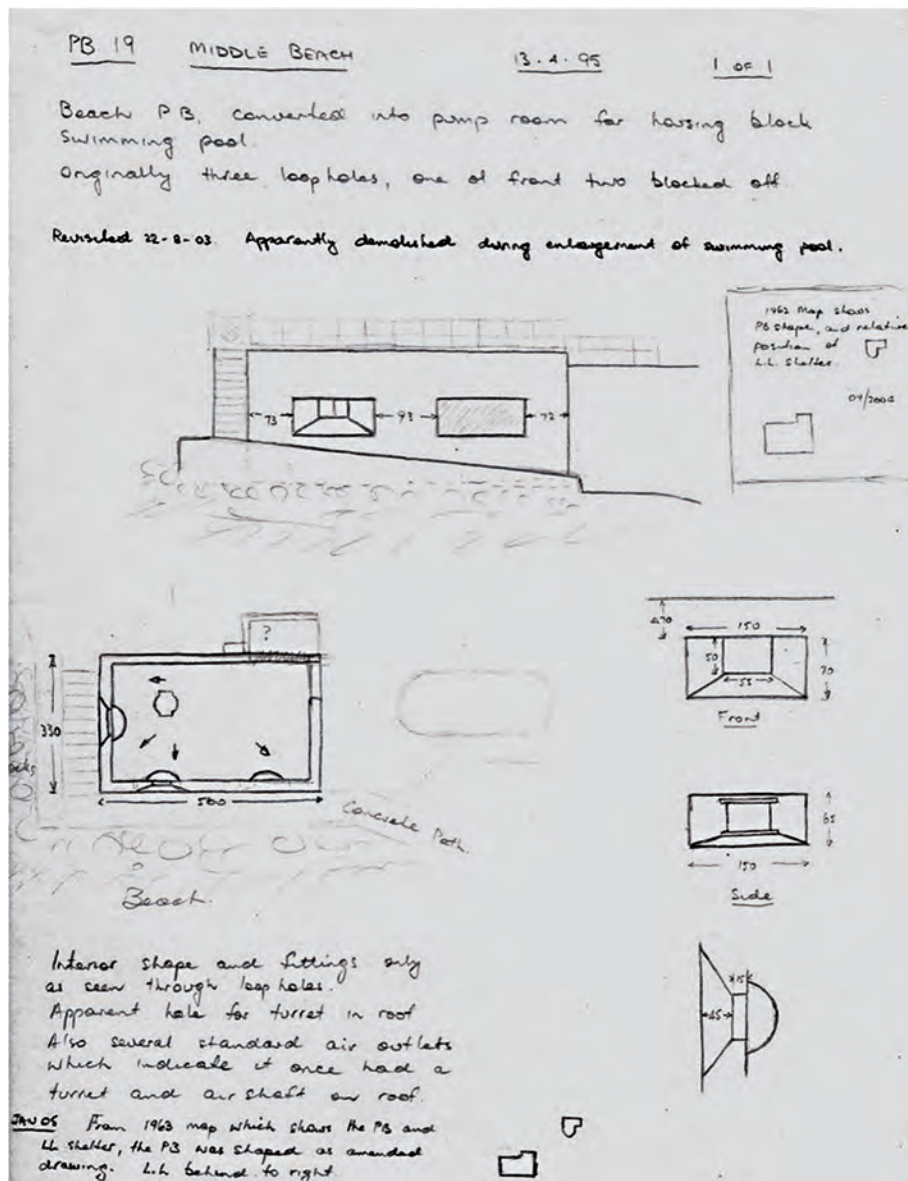 PB 19 MIDDLE BEACH 13.4.95 1 OF 1
Beach PB, converted into pump room for housing block
swimming pool.
Originally three loopholes, one of front two blocked off.
Revisited 22-8-03. Apparently demolished during enlargement of swimming pool.
1962 Map shows
PB shape, and relative
position of
L.L. Shelter.
73 93 72
?
330
500
Concrete Path
Beach.
150
50
55
70
Front
65
150
Side
15
45
Interior shape and fittings only
as seen through loopholes.
Apparent hole for turret in roof
Also several standard air outlets
which indicate it once had a
turret and air shaft on roof.
JAN 05 From 1963 map which shows the PB and
LL shelter, the PB was shaped as amended
drawing. L.L behind to right.